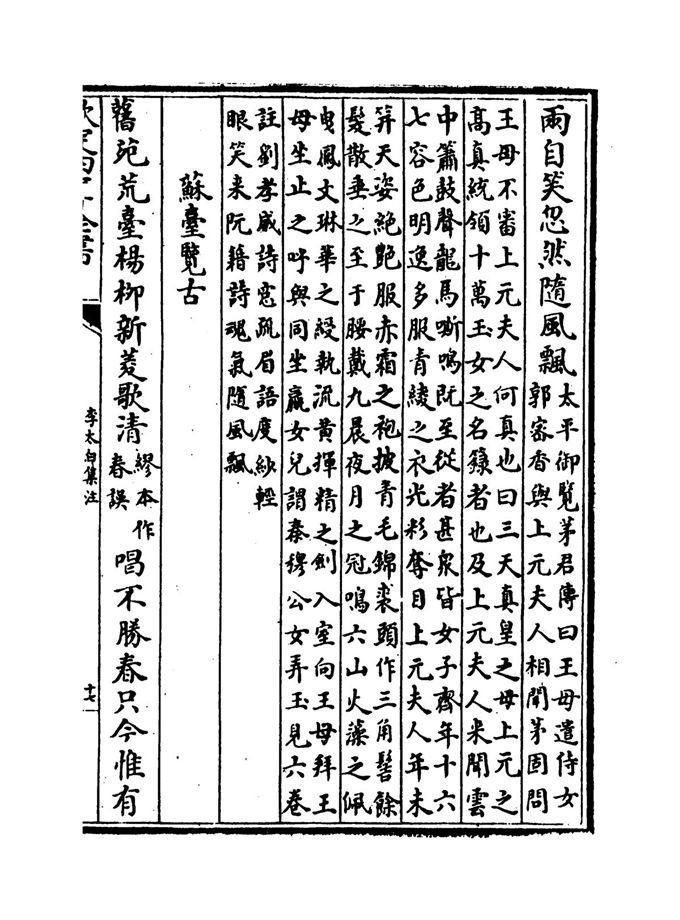 兩自笑忽然隨風飄
太平御覽茅君傳曰王母遣侍女
郭密香與上元夫人相聞茅固問
王母不審上元夫人何真也曰三天真皇之母上元之
高真統領十萬玉女之名籙者也及上元夫人來聞雲
中簫鼓聲龍馬嘶鳴既至從者甚衆皆女子齊年十六
七容色明逸多服青綾之衣光彩奪目上元夫人年未
笄天姿絶艶服赤霜之袍披青毛錦裘頭作三角髻餘
髮散垂之至于腰戴九晨夜月之冠鳴六山火藻之佩
曳鳳文琳華之綬執流黄揮精之劍入室向王母拜王
母坐止之呼與同坐嬴女兒謂秦穆公女弄玉見六卷
註劉孝威詩窓疏眉語度紗輕
眼笑來阮籍詩魂氣隨風飄
蘇臺覽古
舊苑荒臺楊柳新菱歌清
繆本作
春誤
唱不勝春只今惟有
欽定四庫全書
李太白集注
十七